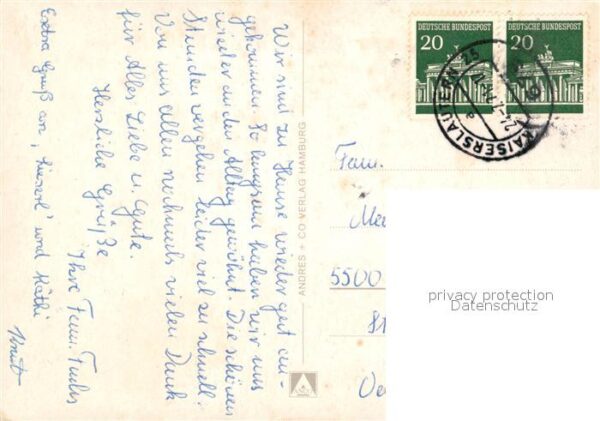 Wir sind zu Hause wieder gut an-
gekommen. So langsam haben wir uns
wieder an den Alltag gewöhnt. Die schönen
Stunden vergehen leider viel zu schnell.
Von uns allen nochmals vielen Dank
für Alles Liebe u. Gute.
Herzliche Grüße
Ihre Fam. Fuchs
Extra Gruß an und
ANDRES + CO VERLAG HAMBURG
DEUTSCHE BUNDESPOST
20
DEUTSCHE BUNDESPOST
20
KAISERSLAUTERN
Fam.
5500
privacy protection
Datenschutz